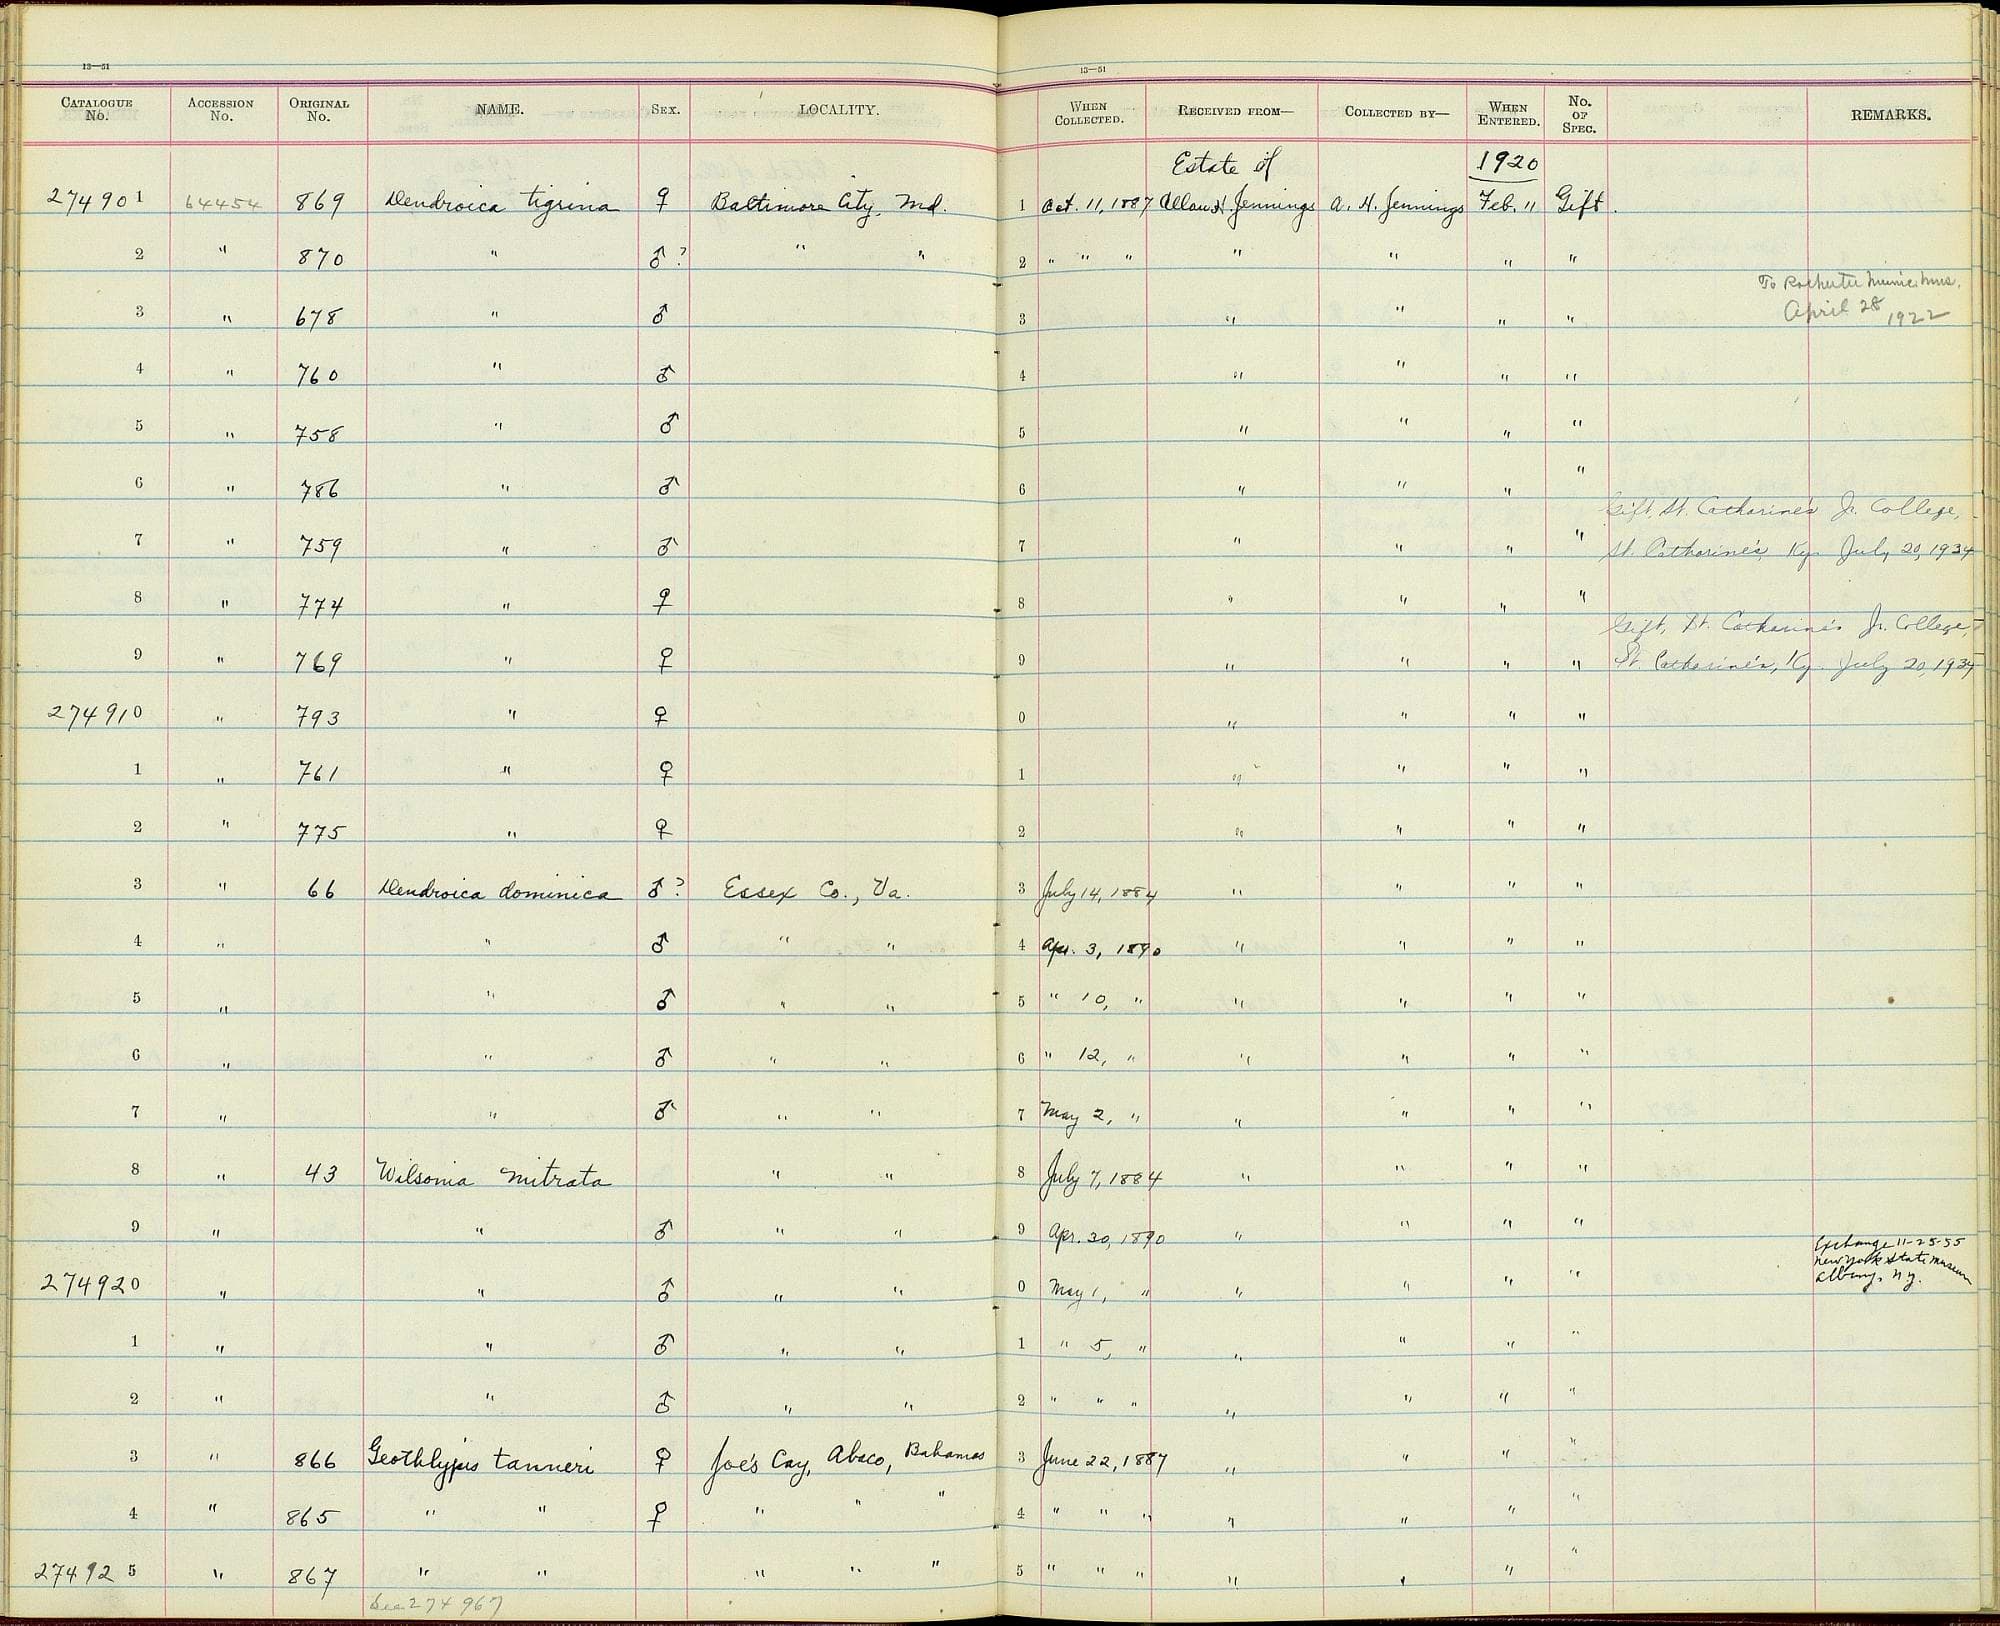 13—51
13—51
CATALOGUE No. ACCESSION No. ORIGINAL No. NAME. SEX. LOCALITY. WHEN COLLECTED. RECEIVED FROM— COLLECTED BY— WHEN ENTERED. No. OF SPEC. REMARKS.
Estate of 1920
274901 64454 869 Dendroica tigrina ♀ Baltimore City, Md. 1 Oct. 11, 1887 Allan H. Jennings A. H. Jennings Feb. 11 Gift.
2 " 870 " ♂? " " 2 " " " " " " "
To Rochester Munic. Mus.
3 " 678 " ♂ 3 " " " " April 28 1922
4 " 760 " ♂ 4 " " " "
5 " 758 " ♂ 5 " " " "
6 " 786 " ♂ 6 " " " "
Gift, St. Catharine's Jr. College,
7 " 759 " ♂ 7 " " " " St. Catharine's, Ky. July 20, 1934
8 " 774 " ♀ 8 " " " "
Gift, St. Catharine's Jr. College,
9 " 769 " ♀ 9 " " " " St. Catharine's, Ky. July 20, 1934
274910 " 793 " ♀ 0 " " " "
1 " 761 " ♀ 1 " " " "
2 " 775 " ♀ 2 " " " "
3 " 66 Dendroica dominica ♂? Essex Co., Va. 3 July 14, 1884 " " " "
4 " " ♂ " " 4 Apr. 3, 1890 " " " "
5 " " ♂ " " 5 " 10, " " " " "
6 " " ♂ " " 6 " 12, " " " " "
7 " " ♂ " " 7 May 2, " " " " "
8 " 43 Wilsonia mitrata " " 8 July 7, 1884 " " " "
9 " " ♂ " " 9 Apr. 30, 1890 " " " "
Exchange 11-25-55
New York State Museum
274920 " " ♂ " " 0 May 1, " " " " " Albany, N.Y.
1 " " ♂ " " 1 " 5, " " " " "
2 " " ♂ " " 2 " " " " " " "
3 " 866 Geothlypis tanneri ♀ Joe's Cay, Abaco, Bahamas 3 June 22, 1887 " " " "
4 " 865 " " ♀ " " " 4 " " " " " " "
274925 " 867 " " " " " 5 " " " " " " "
See 274967